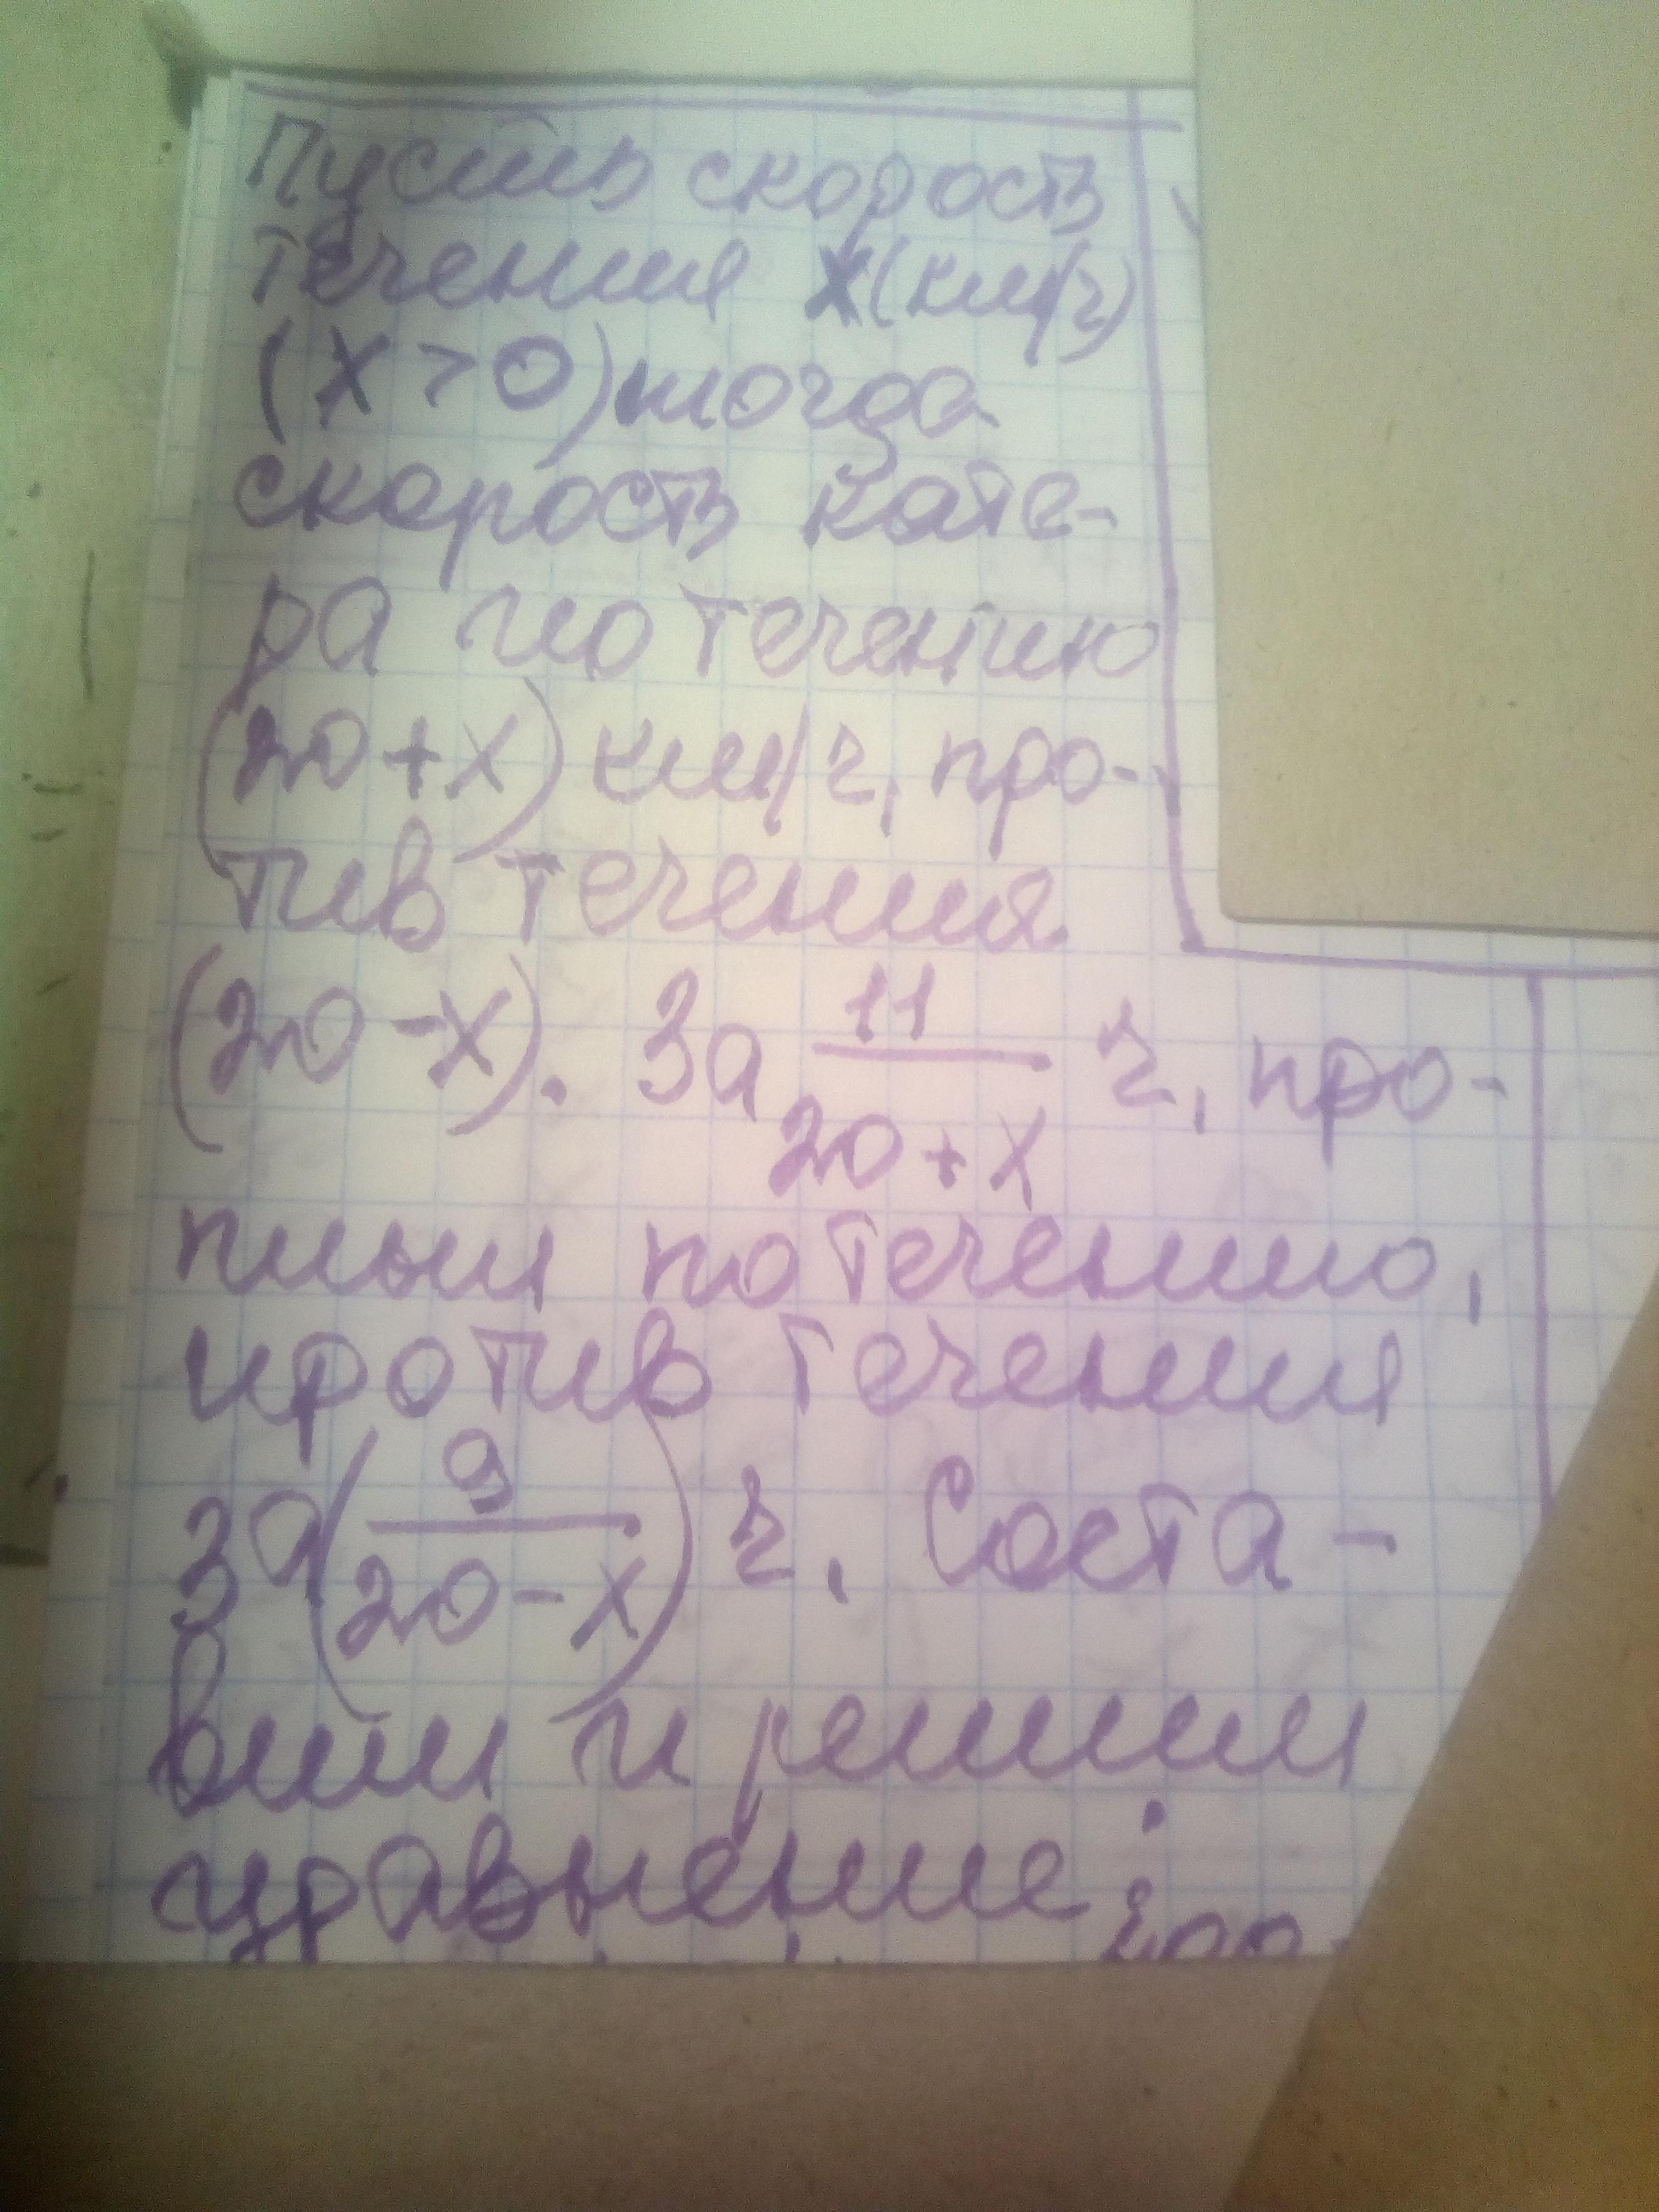 Пусть скорость
течения х(км/ч)
(х > 0) тогда
скорость кате-
ра по течению
(20+х) км/ч, про-
тив течения
(20-х). За 11/(20+х) ч, про-
плыл по течению,
против течения
за (9/(20-х)) ч. Соста-
вим и решим
уравнение: